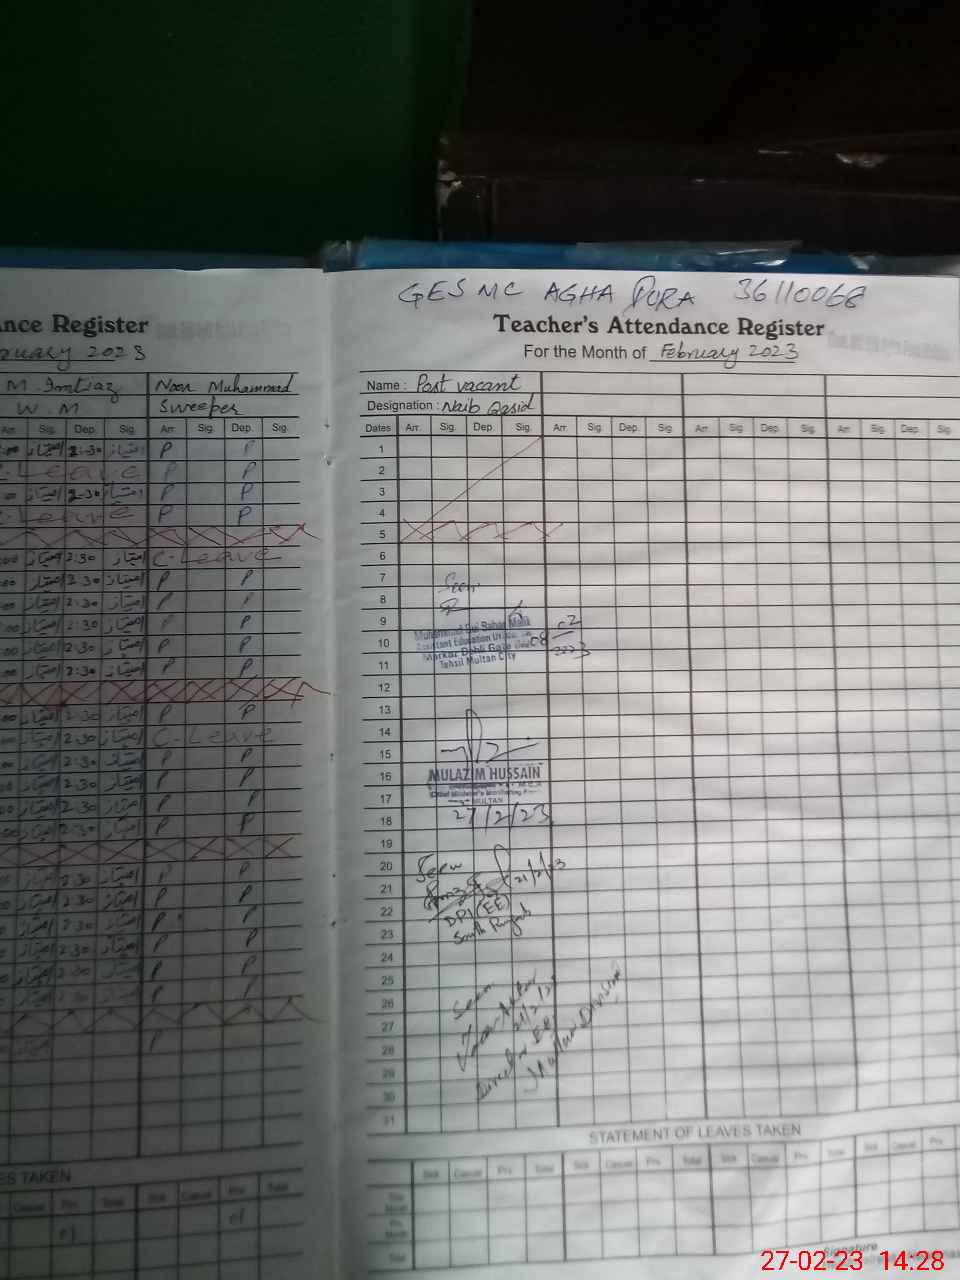 GES MC AGHA PURA 36110068
Teacher's Attendance Register
For the Month of February 2023
Name : Post vacant
Designation : Naib Qasid
Dates Arr. Sig. Dep. Sig. Arr. Sig. Dep. Sig. Arr. Sig. Dep. Sig. Arr. Sig. Dep. Sig.
1
2
3
4
5
6
7
8
9
10
11
12
13
14
15
16
17
18
19
20
21
22
23
24
25
26
27
28
29
30
31
Seen
Tehsil Multan City
08 02 2023
MULAZIM HUSSAIN
MULTAN
27/2/23
Seen
21/2/23
DPI (EE)
South Punjab
Seen
Multan Division
STATEMENT OF LEAVES TAKEN
Sick Casual Priv. Total Sick Casual Priv. Total Sick Casual Priv. Total Sick Casual Priv.
Total
Signature
ance Register
ruary 2023
M. Imtiaz Noor Muhammad
W. M Sweeper
Arr. Sig. Dep. Sig. Arr. Sig. Dep. Sig.
امتیاز 2:30 امتیاز P P
C-Leave P P
امتیاز 2:30 امتیاز P P
C-Leave P P
امتیاز 2:30 امتیاز C-Leave
امتیاز 2:30 امتیاز P P
امتیاز 2:30 امتیاز P P
امتیاز 2:30 امتیاز P P
امتیاز 2:30 امتیاز P P
امتیاز 2:30 امتیاز P P
امتیاز 2:30 امتیاز P P
امتیاز 2:30 امتیاز C-Leave
امتیاز 2:30 امتیاز P P
امتیاز 2:30 امتیاز P P
امتیاز 2:30 امتیاز P P
امتیاز 2:30 امتیاز P P
امتیاز 2:30 امتیاز P P
امتیاز 2:30 امتیاز P P
امتیاز 2:30 امتیاز P P
امتیاز 2:30 امتیاز P P
امتیاز 2:30 امتیاز P P
امتیاز 2:30 امتیاز P P
امتیاز P
ES TAKEN
Casual Priv. Total Sick Casual Priv. Total
01 01
27-02-23 14:28